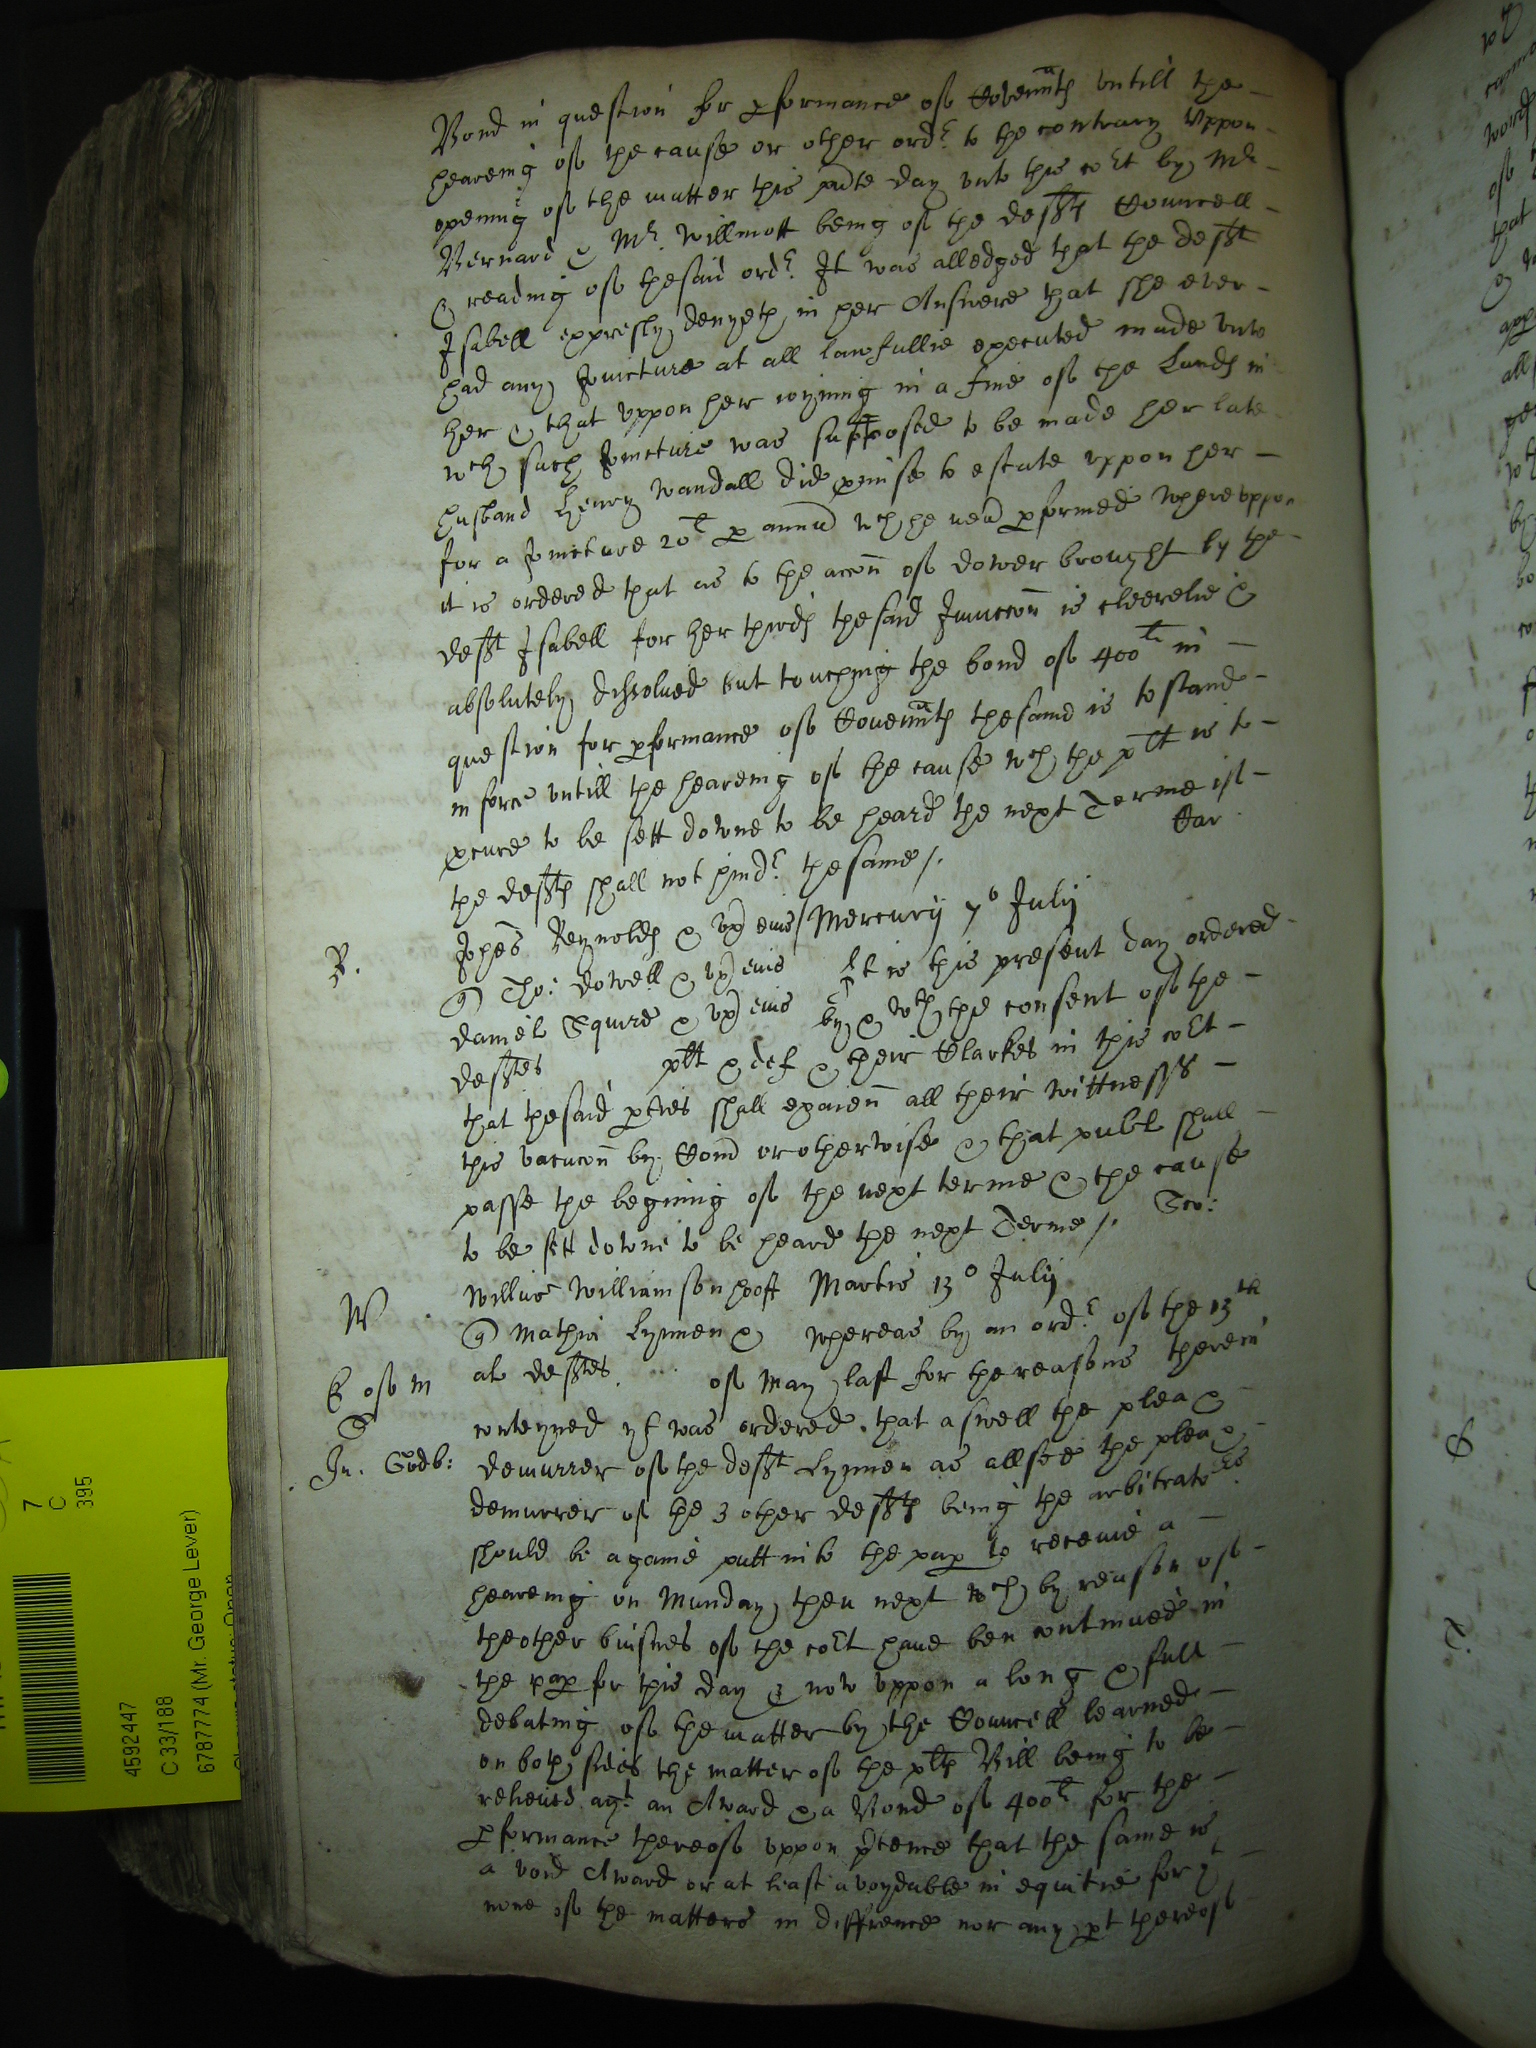 Bond in question for pformance of Covennts untill the
heareing of the cause or other ordr to the contrary Uppon
opening of the matter this pnte day unto this cort by Mr
Bernard & Mr Willmott being of the defts Councell
& reading of the said ordr. It was alledged that the deft
Isabell expresly denyeth in her Answere that she ever
had any Joincture at all lawfullie executed made unto
her & that uppon her joyning in a fine of the Lands in
wch such Joincture was supposed to be made her late
husband Henry Wandall did pmise to estate uppon her
for a Joincture 20l p annu wch he nevr pformed whereuppon
it is ordered that as to the accon of dower brought by the
deft Isabell for her thirds the said Iniuccon is cleerelie &
absolutely dissolved but touching the bond of 400l in
question for pformance of Covennts the same is to stand
in force untill the heareing of the cause wch the plt is to
pcure to be sett downe to be heard the next Terme if
the defts shall not hindr the same /. Car
R.
Johes Reynolds & ux eius / Mercurij 7o Julij
Tho: Dowell & ux eius It is this present day ordered
Daniel Squire & ux eius by & wth the consent of the
deftes plt & def & their Clarkes in this cort
that the said pties shall examn all their wittnesses
this vacacon by Comn or otherwise & that publ shall
passe the begining of the next terme & the cause
to be sett downe to be heard the next Terme /.
W
Willus Williamson quer Martis 13o Julij
Mathia Lynnen & Whereas by an ordr of the 13th
al deftes of May last for the reasons therein
Jn. Godb:
conteyned yt was ordered that aswell the plea &
demurrer of the deft Lynnen as allsoe the plea &
demurrer of the 3 other defts being the arbitrators
should be againe putt into the pap to receive a
heareing on Munday then next wch by reason of
the other buisnes of the cort have ben continued in
the pap for this day & now uppon a long & full
debating of the matter by the Councell learned
on both sides the matter of the plts Bill being to be
relieved agt an Award & a Bond of 400l for the
pformance thereof uppon ptence that the same is
a void Award or at least avoydable in equitie for yt
none of the matters in diffrence nor any pt thereof
7
C
395
4592447
C 33/188
6787774 (Mr. George Lever)